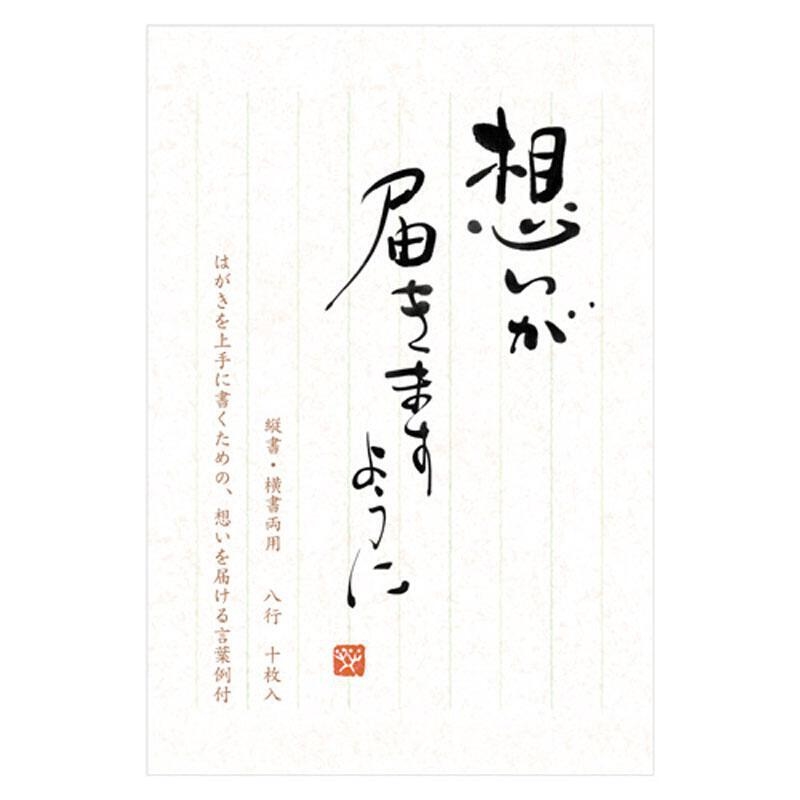 想いが
届きます
ように
縦書・横書両用　八行　十枚入
はがきを上手に書くための、想いを届ける言葉例付